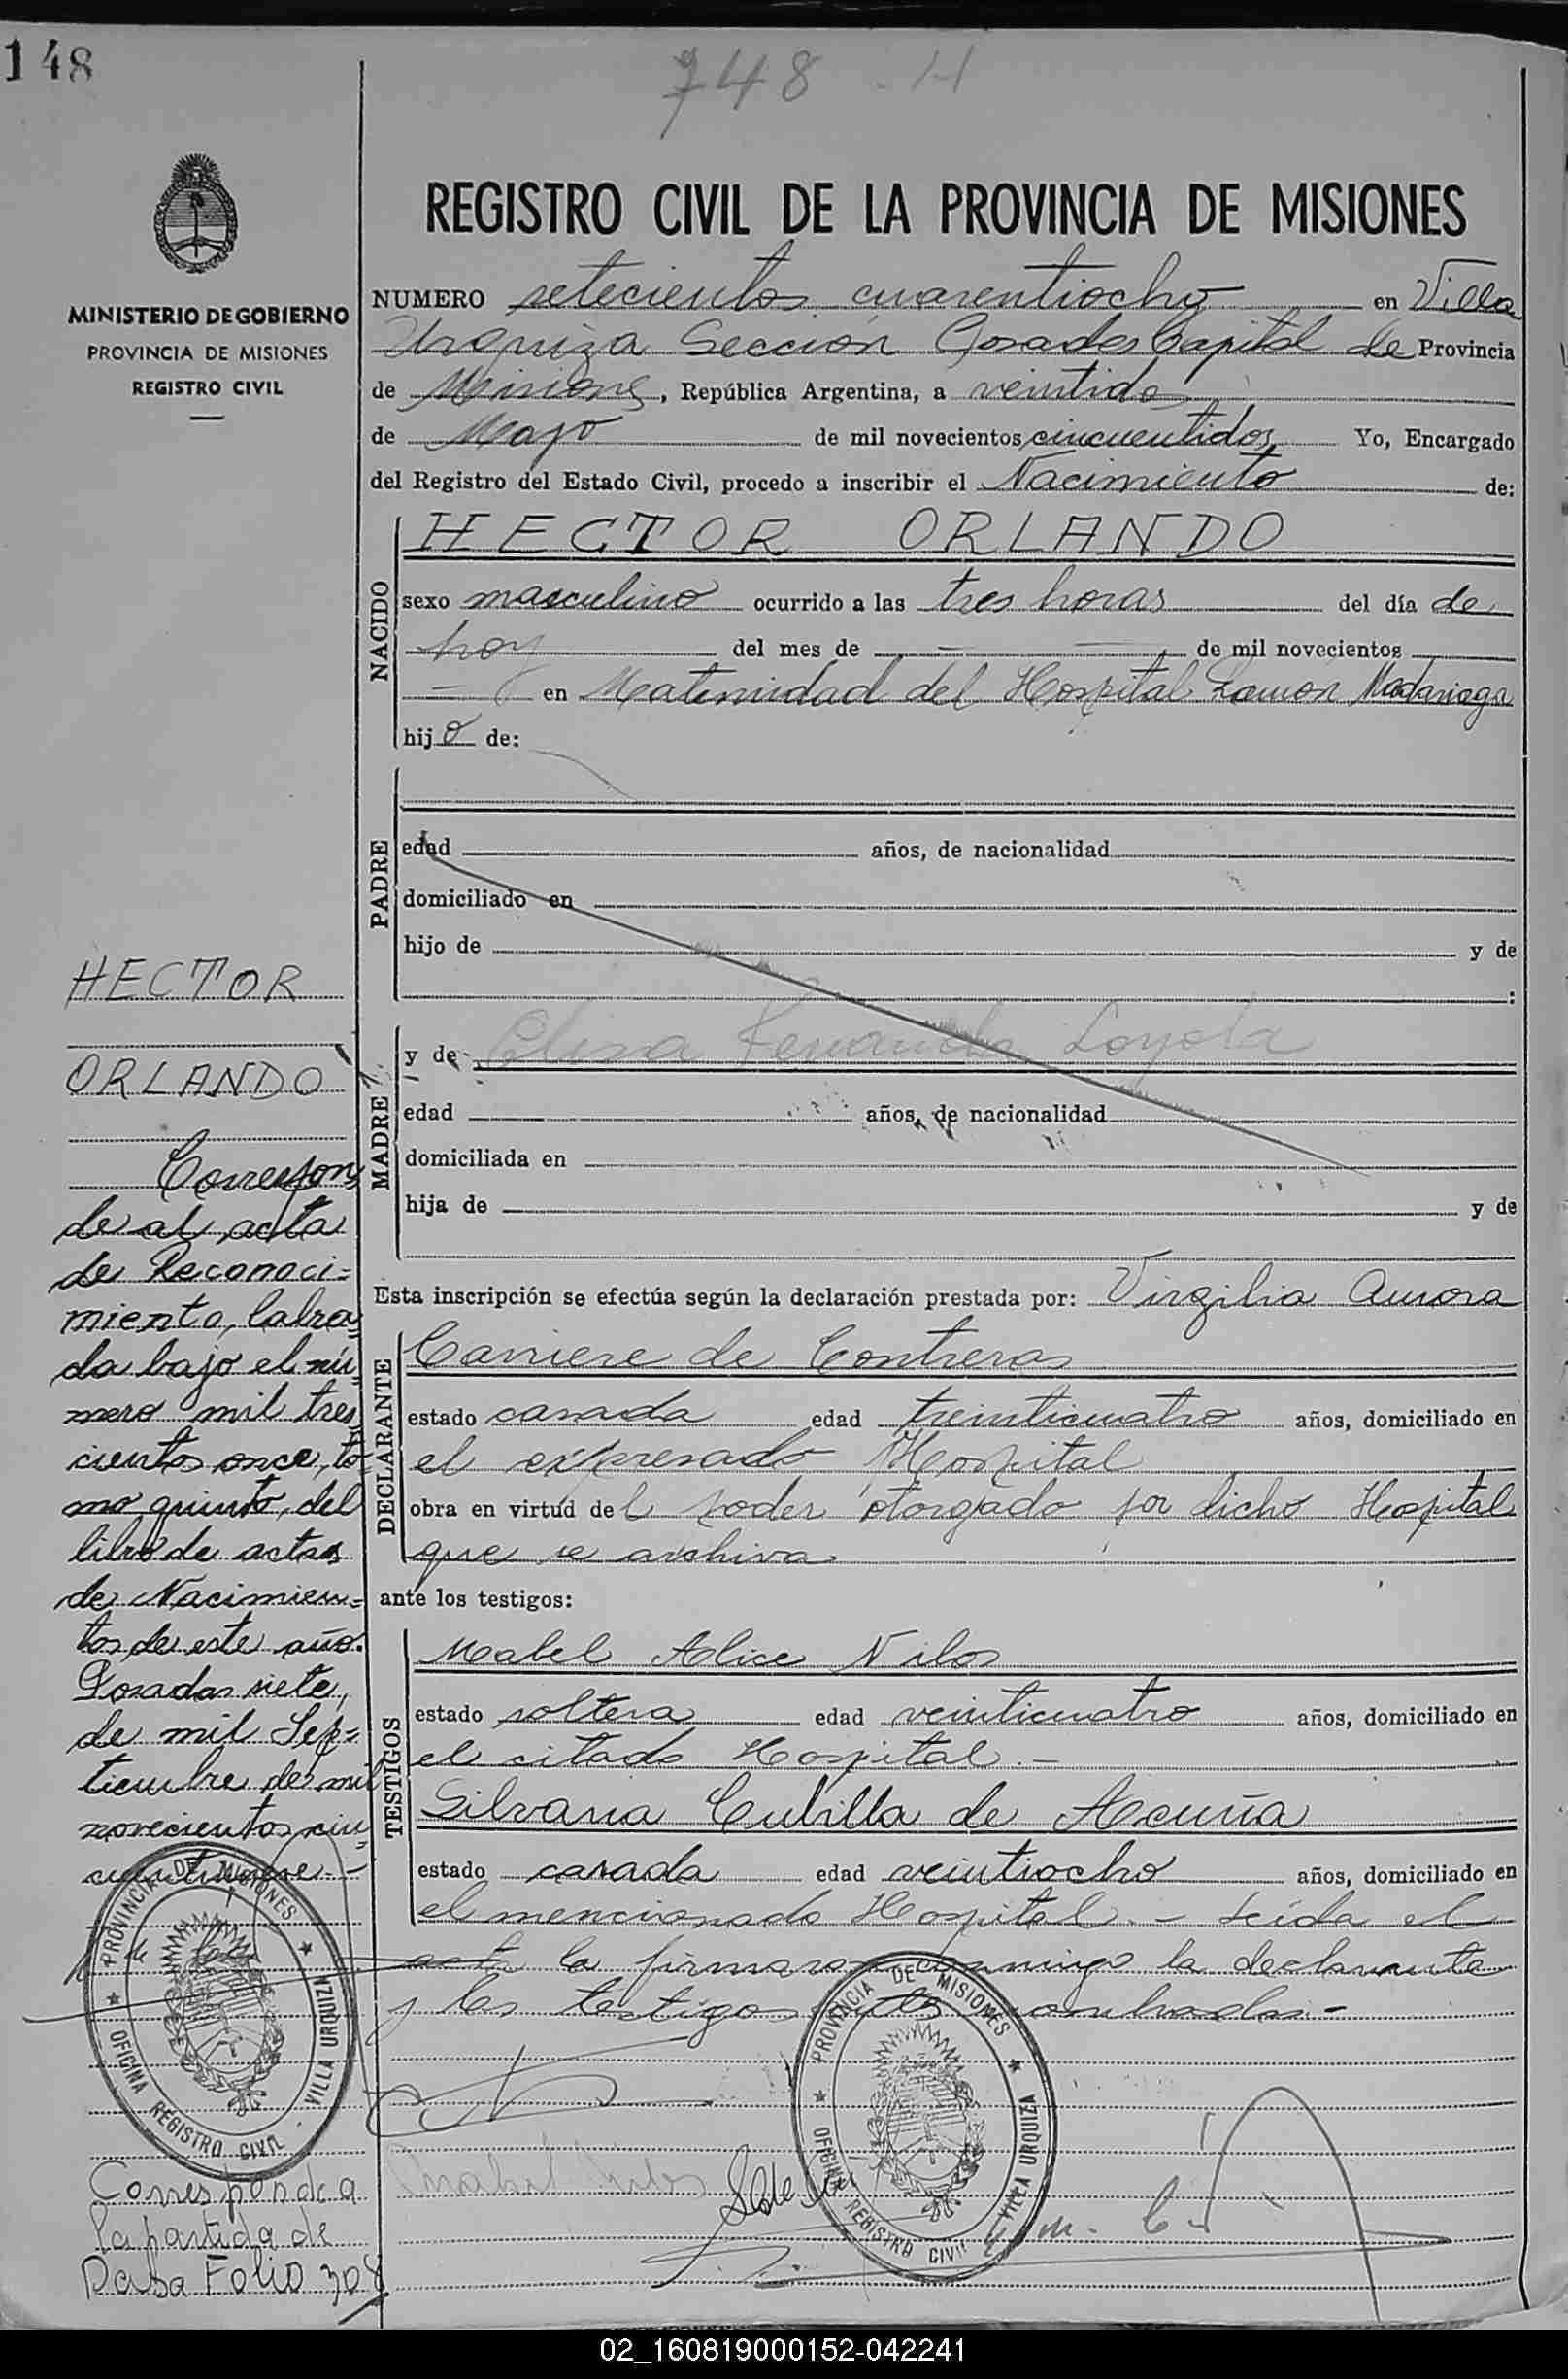 148
748 - H
MINISTERIO DE GOBIERNO
PROVINCIA DE MISIONES
REGISTRO CIVIL
REGISTRO CIVIL DE LA PROVINCIA DE MISIONES
NUMERO setecientos cuarentiocho en Villa
Urquiza Sección Posadas Capital de Provincia
de Misiones, República Argentina, a veintidos
de Mayo de mil novecientos cincuentidos Yo, Encargado
del Registro del Estado Civil, procedo a inscribir el Nacimiento de:
NACIDO
HECTOR ORLANDO
sexo masculino ocurrido a las tres horas del día de
hoy del mes de — — de mil novecientos
— en Maternidad del Hospital Ramón Madariaga
hijo de:
PADRE
edad años, de nacionalidad
domiciliado en
hijo de y de
:
MADRE
y de Elisa Fernandez Loyola
edad años, de nacionalidad
domiciliada en
hija de y de
Esta inscripción se efectúa según la declaración prestada por: Virgilia Aurora
DECLARANTE
Carriere de Contreras
estado casada edad treinticuatro años, domiciliado en
el expresado Hospital
obra en virtud del poder otorgado por dicho Hospital
que se archiva.
ante los testigos:
TESTIGOS
Mabel Alice Nilos
estado soltera edad veinticuatro años, domiciliado en
el citado Hospital. -
Silvaria Cubilla de Acuña
estado casada edad veintiocho años, domiciliado en
el mencionado Hospital. - Leida el
acta la firmaron conmigo la declarante
y los testigos nombrados -
HECTOR
ORLANDO
Correspon
de al acta
de Reconoci=
miento, labra
da bajo el nú
mero mil tres
cientos once, to
mo quinto, del
libro de actas
de Nacimien=
tos de este año.
Posadas siete,
de mil Sep=
tiembre de mil
novecientos cin
PROVINCIA DE MISIONES
OFICINA REGISTRO CIVIL
VILLA URQUIZA
PROVINCIA DE MISIONES
OFICINA REGISTRO CIVIL
VILLA URQUIZA
Mabel Nilos
Corresponde a
la partida de
Folio 308
02_160819000152-042241